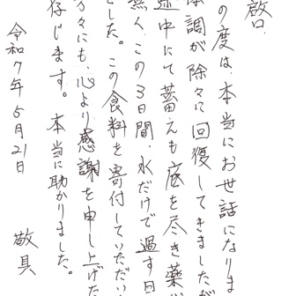 啓口、
の度は、本当にお世話になりま
体調が除々に回復してきましたが
途中にて蓄えも底を尽き薬
無く、この3日間、水だけで過す日
した。この食料を寄付していただい
方々にも、心より感謝を申し上げた
存じます。本当に助かりました。
令和7年5月21日
敬具